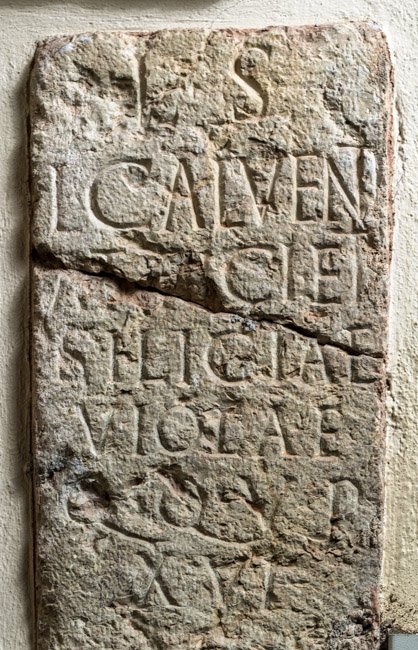 L S
L CALVEN
CI ET
SILICIAE
VIOLAE
XVI